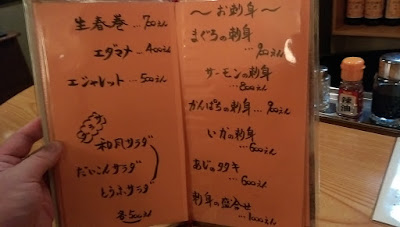 生春巻 … 700えん
エダマメ … 400えん
エシャレット … 500えん
和風サラダ
だいこんサラダ
とうふサラダ
各500えん
〜お刺身〜
まぐろの刺身
… 900えん
サーモンの刺身
… 800えん
かんぱちの刺身
… 900えん
いかの刺身
… 600えん
あじのタタキ
… 600えん
刺身の盛合せ
… 1000えん